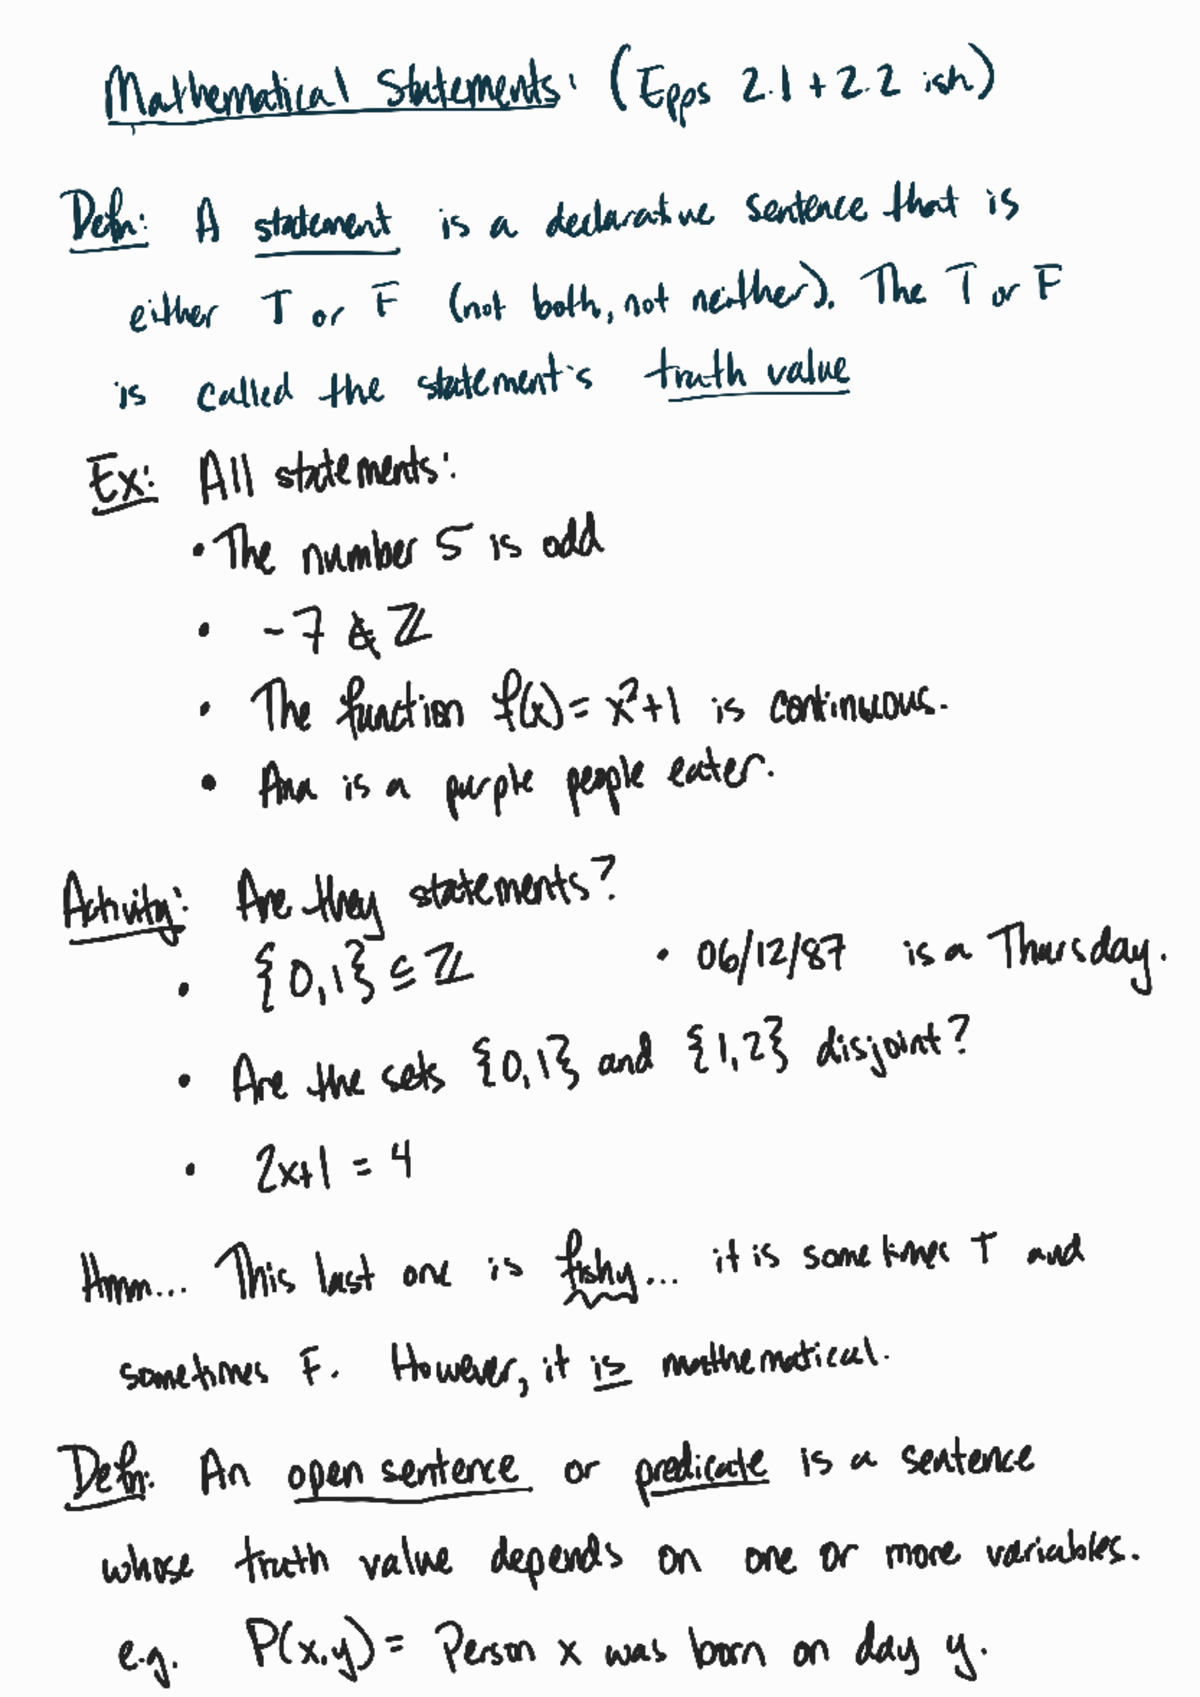 Mathematical Statements: (Epps 2.1 + 2.2 ish)
Defn: A statement is a declarative sentence that is
either T or F (not both, not neither). The T or F
is called the statement's truth value
Ex: All statements:
• The number 5 is odd
• -7 ∉ ℤ
• The function f(x) = x²+1 is continuous.
• Ana is a purple people eater.
Activity: Are they statements?
• {0,1} ⊆ ℤ • 06/12/87 is a Thursday.
• Are the sets {0,1} and {1,2} disjoint?
• 2x+1 = 4
Hmm... This last one is fishy... it is sometimes T and
sometimes F. However, it is mathematical.
Defn: An open sentence or predicate is a sentence
whose truth value depends on one or more variables.
e.g. P(x,y) = Person x was born on day y.